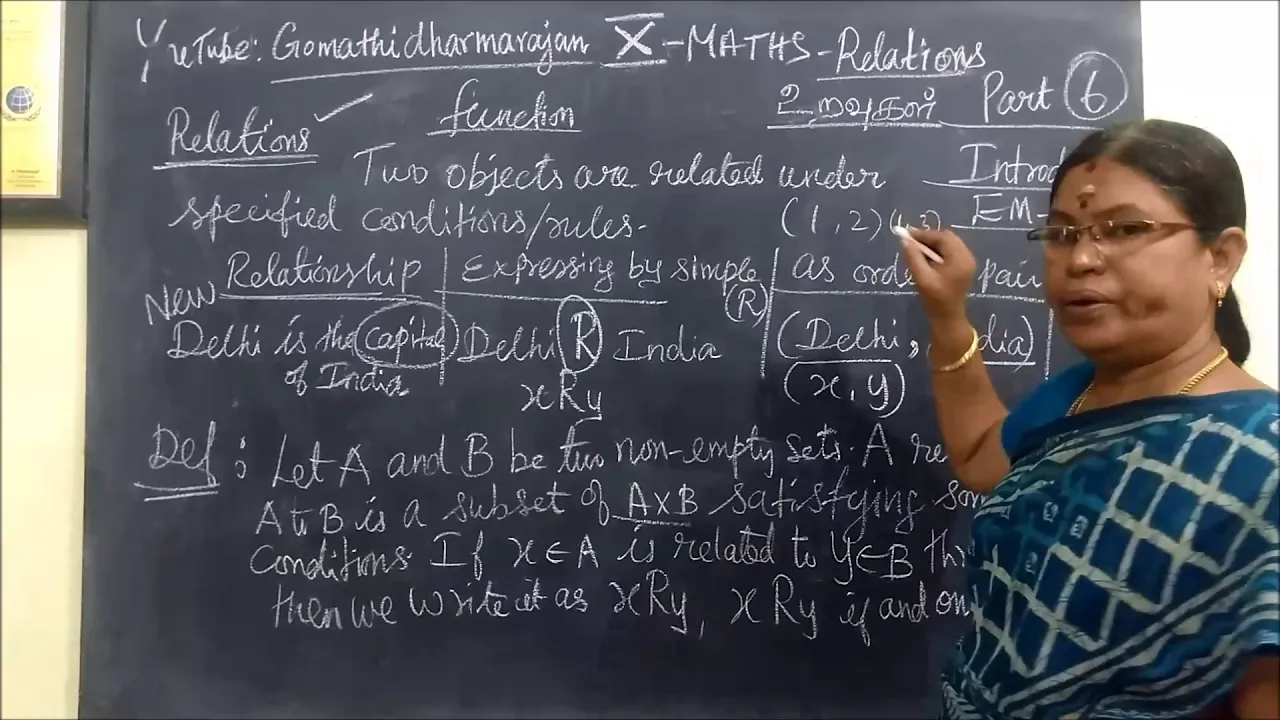 YuTube: Gomathidharmarajan X - MATHS - Relations
உறவுகள் Part 6
Relations ✓ function
Two objects are related under Introd
specified conditions/rules. (1, 2) (1, 3) EM-
New Relationship Expressing by simple (R) as orde pair
Delhi is the Capital Delhi R India (Delhi, dia)
of India xRy (x, y)
Def : Let A and B be two non-empty sets. A re
A to B is a subset of A×B satisfying som
Conditions. If x∈A is related to y∈B thr
then we write it as xRy, xRy if and on